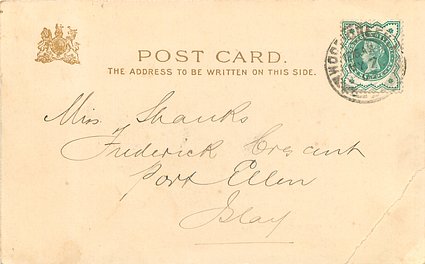 POST CARD.
THE ADDRESS TO BE WRITTEN ON THIS SIDE.
Miss Shanks
Frederick Crescent
Port Ellen
Islay